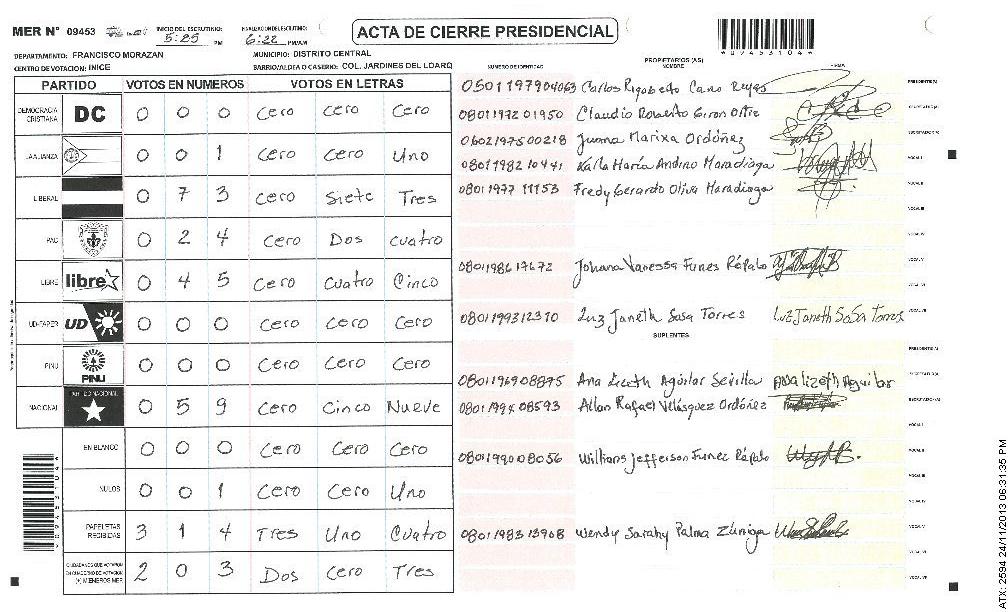 MER Nº 09453 INICIO DEL ESCRUTINIO: 5:25 PM FINALIZACION DEL ESCRUTINIO: 6:22 PM/AM
ACTA DE CIERRE PRESIDENCIAL
09453104
DEPARTAMENTO: FRANCISCO MORAZAN MUNICIPIO: DISTRITO CENTRAL
CENTRO DE VOTACION: INICE BARRIO/ALDEA O CASERIO: COL. JARDINES DEL LOARQ
PARTIDO VOTOS EN NUMEROS VOTOS EN LETRAS
DEMOCRACIA CRISTIANA DC 0 0 0 Cero Cero Cero
LA ALIANZA 0 0 1 Cero Cero Uno
LIBERAL 0 7 3 Cero Siete Tres
PAC 0 2 4 Cero Dos Cuatro
LIBRE libre 0 4 5 Cero Cuatro Cinco
UD-FAPER UD 0 0 0 Cero Cero Cero
PINU PINU 0 0 0 Cero Cero Cero
NACIONAL PARTIDO NACIONAL 0 5 9 Cero Cinco Nueve
EN BLANCO 0 0 0 Cero Cero Cero
NULOS 0 0 1 Cero Cero Uno
PAPELETAS RECIBIDAS 3 1 4 Tres Uno Cuatro
CIUDADANOS QUE VOTARON EN CUADERNO DE VOTACION (+) MIEMBROS MER 2 0 3 Dos Cero Tres
PROPIETARIOS (AS)
NUMERO DE IDENTIDAD NOMBRE FIRMA
0501197904063 Carlos Rigoberto Cano Reyes PRESIDENTE(A)
0801197201950 Claudio Roberto Giron SECRETARIO(A)
0602197500218 Juana Marixa Ordóñez ESCRUTADOR(A)
0801198210441 Karla María Andino Maradiaga VOCAL I
0801197711153 Fredy Gerardo Oliva Maradiaga VOCAL II
VOCAL III
VOCAL IV
0801198617672 Johana Vanessa Funes Rápalo VOCAL V
VOCAL VI
0801199312310 Luz Janeth Sosa Torres Luz Janeth Sosa Torres VOCAL VII
SUPLENTES
PRESIDENTE(A)
0801196908895 Ana Lizeth Aguilar Sevilla Ana Lizeth Aguilar SECRETARIO(A)
0801199408593 Allan Rafael Velásquez Ordóñez ESCRUTADOR(A)
VOCAL I
0801199008056 Willians Jefferson Funez Rápalo VOCAL II
VOCAL III
VOCAL IV
0801198313908 Wendy Sarahy Palma Zúniga VOCAL V
VOCAL VI
VOCAL VII
ATX: 2594 24/11/2013 06:31:35 PM